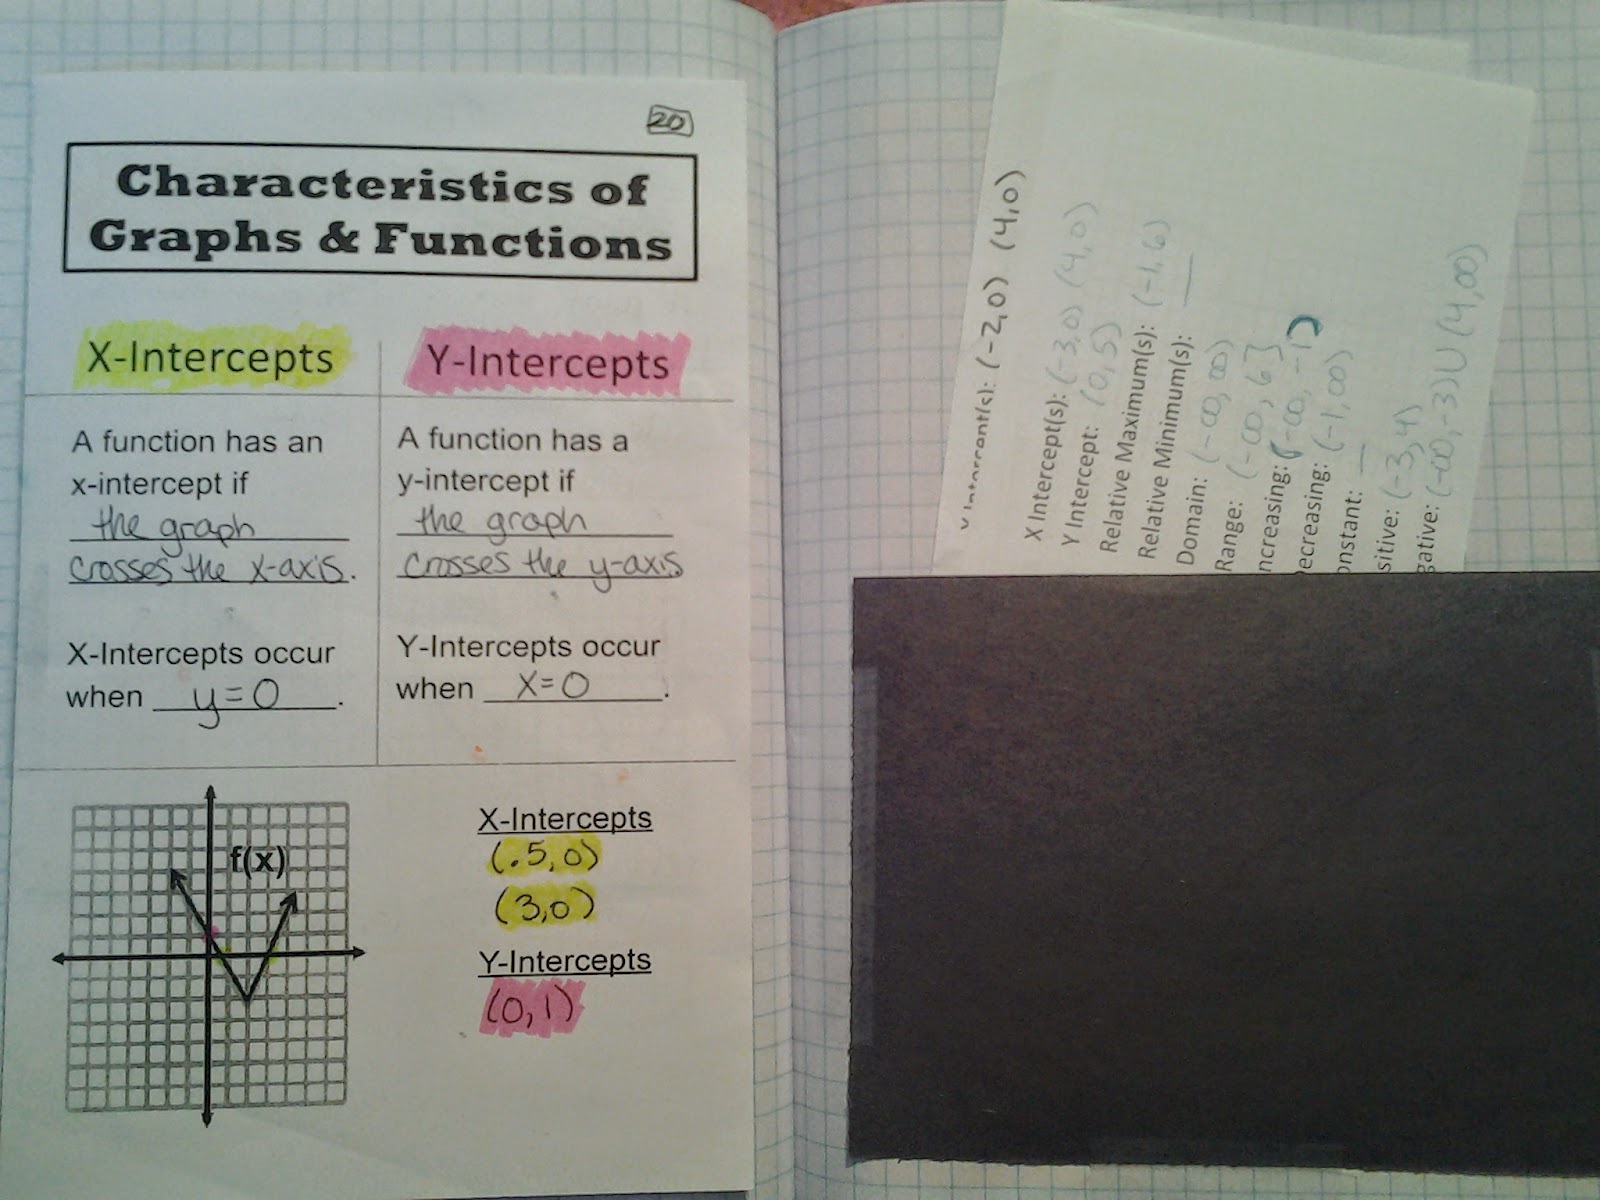 20
Characteristics of
Graphs & Functions
X-Intercepts
A function has an
x-intercept if
the graph
crosses the x-axis.
X-Intercepts occur
when y=0.
Y-Intercepts
A function has a
y-intercept if
the graph
crosses the y-axis
Y-Intercepts occur
when x=0.
f(x)
X-Intercepts
(.5,0)
(3,0)
Y-Intercepts
(0,1)
(-2,0) (4,0)
X Intercept(s): (-3,0) (4,0)
Y Intercept: (0,5)
Relative Maximum(s): (-1,6)
Relative Minimum(s):
Domain: (-∞,∞)
Range: (-∞,6]
ncreasing: (-∞,-1)
ecreasing: (-1,∞)
onstant:
sitive: (-3,4)
gative: (-∞,-3)∪(4,∞)